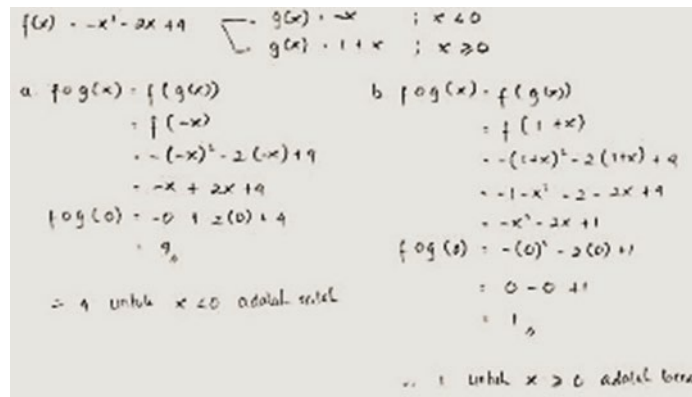 f(x) = -x² - 2x + 4
g(x) = -x ; x < 0
g(x) = 1 + x ; x ≥ 0
a. fog(x) = f(g(x))
= f(-x)
= -(-x)² - 2(-x) + 4
= -x + 2x + 4
fog(0) = -0 + 2(0) + 4
= 4
∴ 4 untuk x < 0 adalah
b. fog(x) = f(g(x))
= f(1+x)
= -(1+x)² - 2(1+x) + 4
= -1 - x² - 2 - 2x + 4
= -x² - 2x + 1
fog(0) = -(0)² - 2(0) + 1
= 0 - 0 + 1
= 1
∴ 1 untuk x ≥ 0 adalah